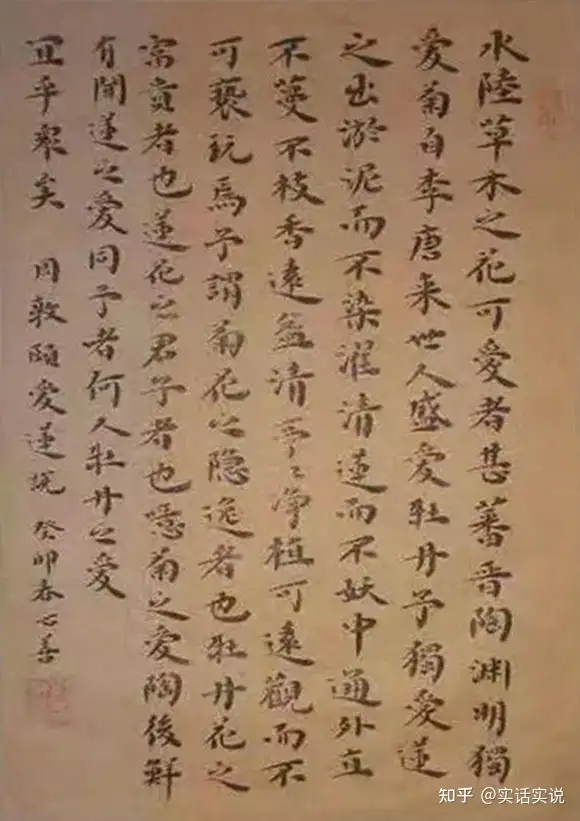 水陸草木之花可愛者甚蕃晋陶渊明獨
愛菊自李唐来世人盛愛牡丹予獨愛蓮
之出淤泥而不染濯清蓮而不妖中通外立
不蔓不枝香遠益清亭々净植可遠觀而不
可褻玩焉予謂菊花之隐逸者也牡丹花之
富貴者也蓮花之君子者也噫菊之愛陶後鮮
有聞蓮之愛同予者何人牡丹之愛
宜乎衆矣 周敦頤愛蓮説 癸卯春心善
知乎 @实话实说